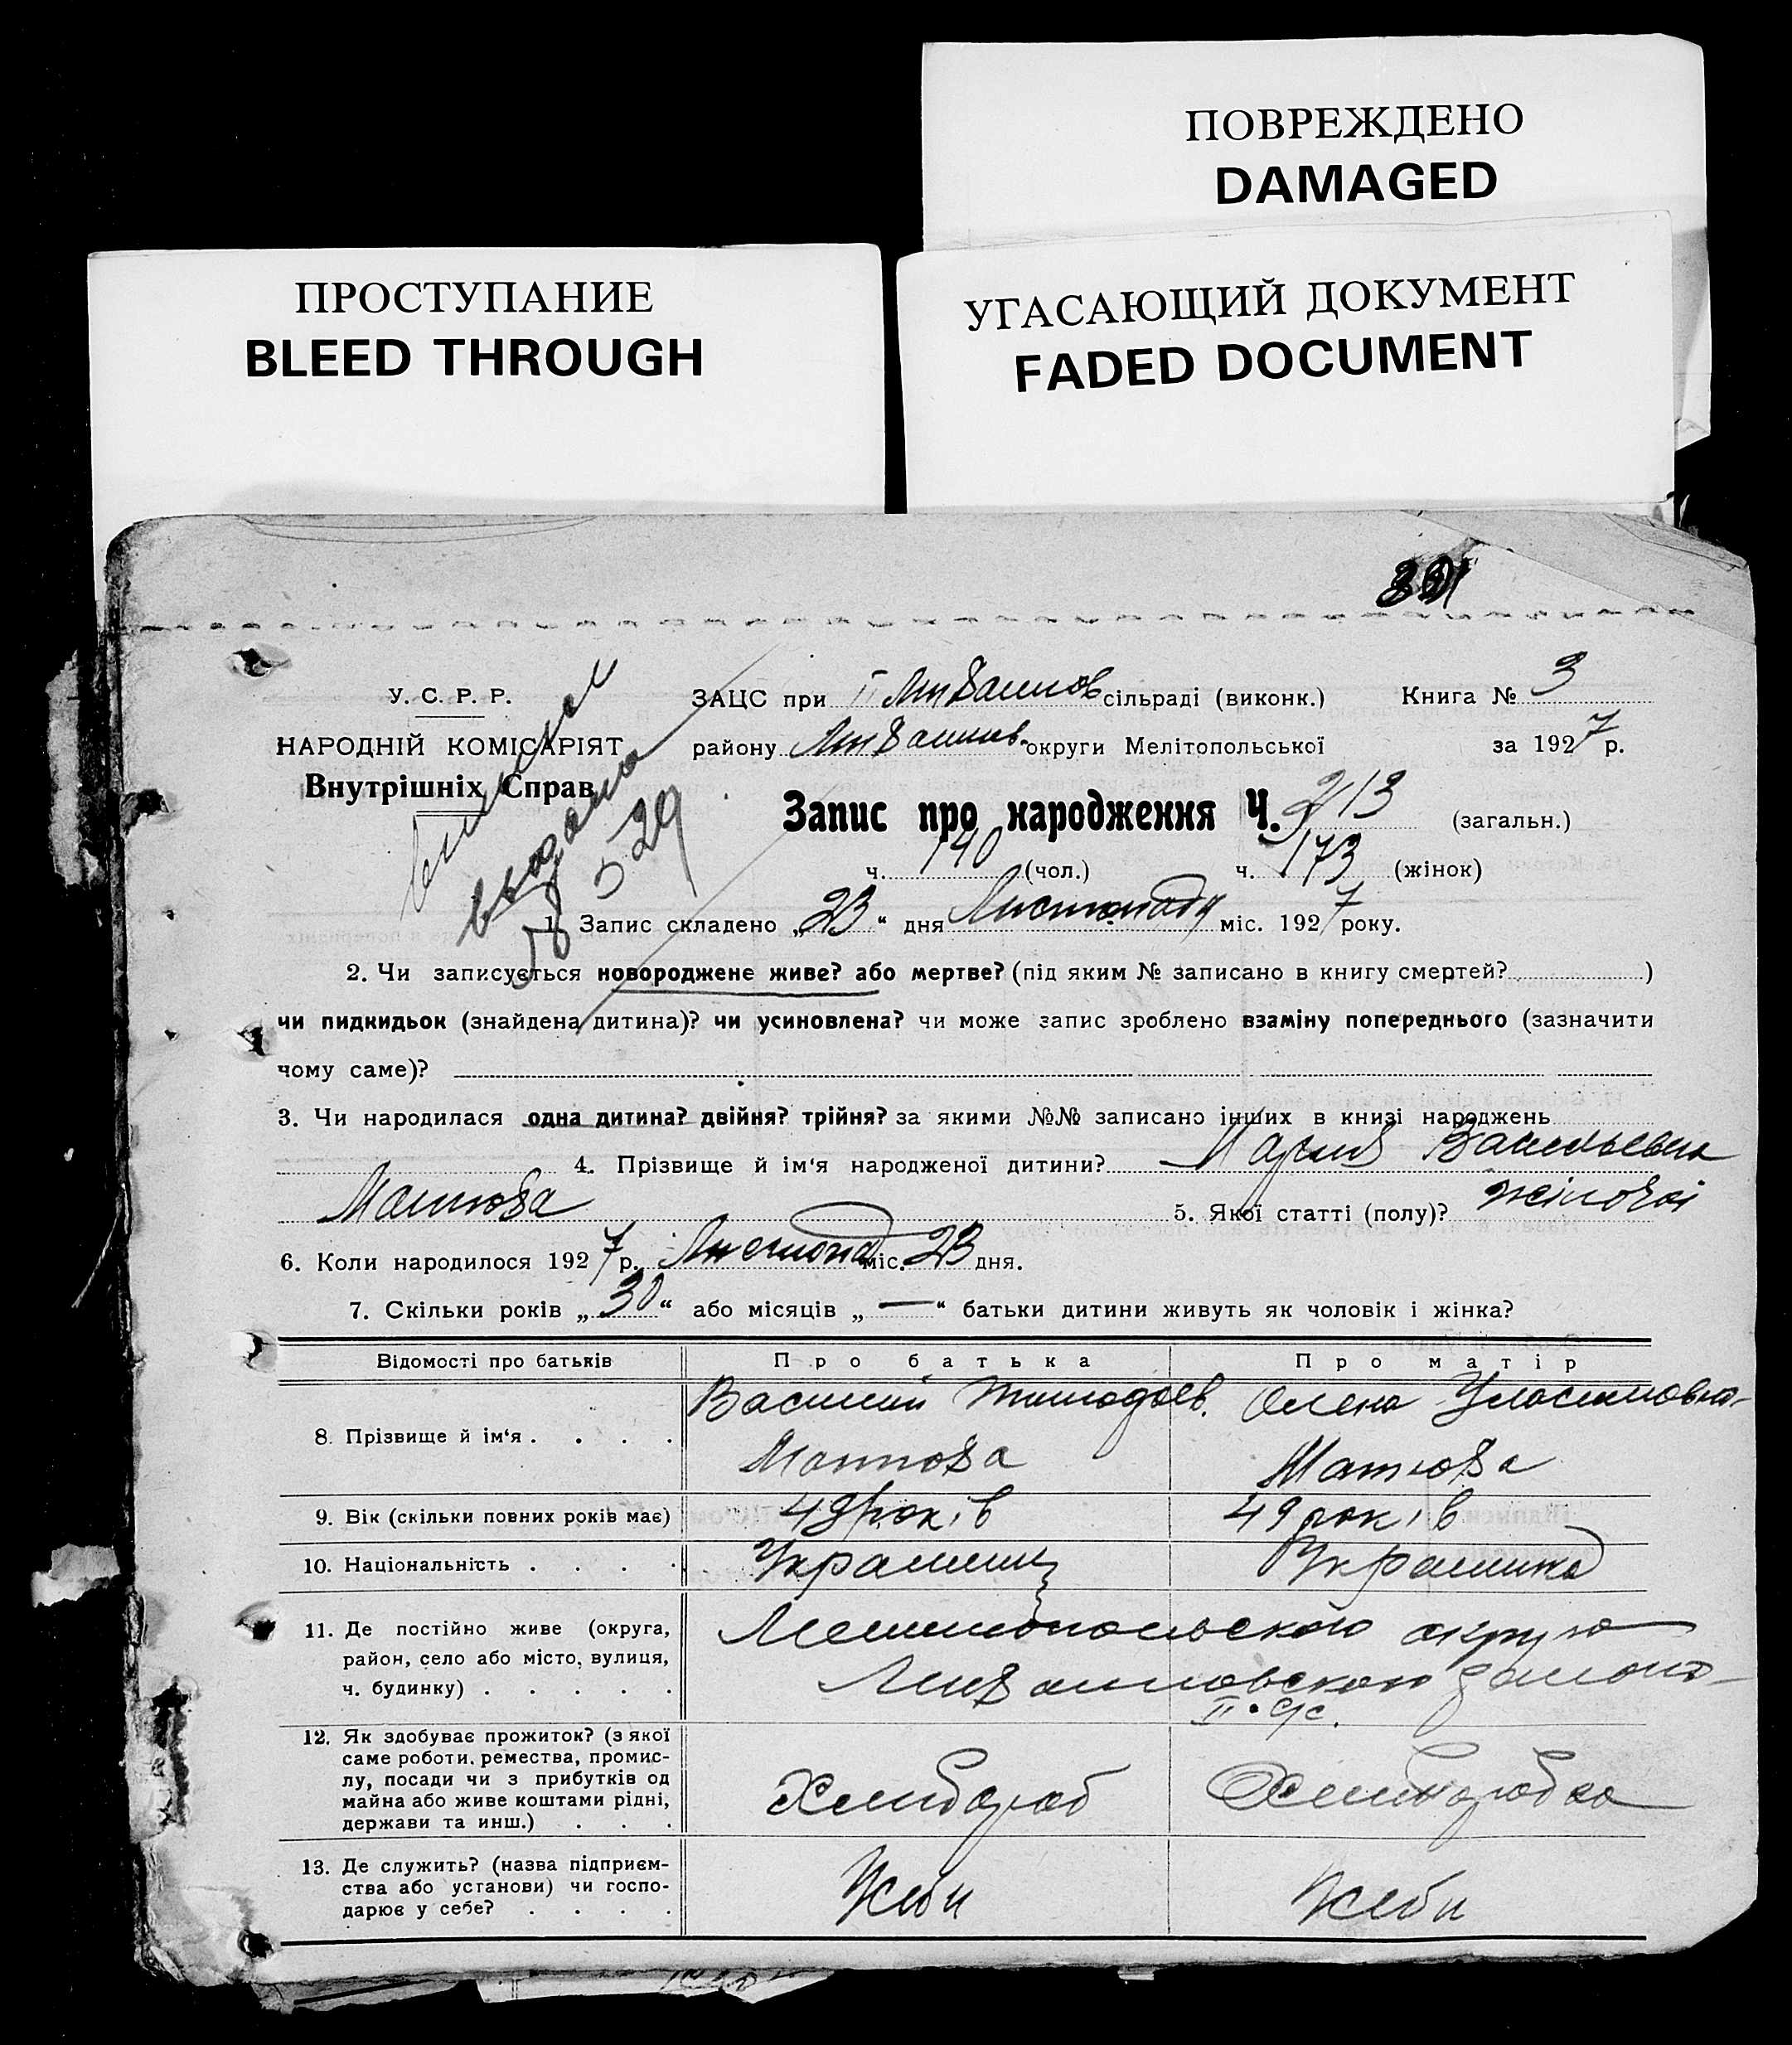 ПОВРЕЖДЕНО
DAMAGED
ПРОСТУПАНИЕ
BLEED THROUGH
УГАСАЮЩИЙ ДОКУМЕНТ
FADED DOCUMENT
У. С. Р. Р.
НАРОДНІЙ КОМІСАРІЯТ
Внутрішніх Справ
выдана
5 29
ЗАЦС при II сільраді (виконк.) Книга № 3
району округи Мелітопольської за 1927 р.
Запис про народження Ч. 313 (загальн.)
ч. 140 (чол.) ч. 173 (жінок)
1. Запис складено „23“ дня Листопада міс. 1927 року.
2. Чи записується новороджене живе? або мертве? (під яким № записано в книгу смертей? )
чи пидкидьок (знайдена дитина)? чи усиновлена? чи може запис зроблено взаміну попереднього (зазначити
чому саме)?
3. Чи народилася одна дитина? двійня? трійня? за якими №№ записано інших в книзі народжень
4. Прізвище й ім‘я народженої дитини? Мария Васильевна
Матюха 5. Якої статті (полу)? жіночої
6. Коли народилося 1927 р. Листопад міс. 23 дня.
7. Скільки років „30“ або місяців „—“ батьки дитини живуть як чоловік і жінка?
Відомості про батьків Про батька Про матір
8. Прізвище й ім‘я . . . . Василий Тимофіев. Олена
Матюха Матюха
9. Вік (скільки повних років має) 49 років 49 років
10. Національність . . . . Украинец Украинка
11. Де постійно живе (округа,
район, село або місто, вулиця,
ч. будинку) . . . . .
Мелитопольского округа
района
II с/с.
12. Як здобуває прожиток? (з якої
саме роботи, ремества, промис-
лу, посади чи з прибутків од
майна або живе коштами рідні,
держави та инш.) . . .
Хлибороб Хлиборобка
13. Де служить? (назва підприєм-
ства або установи) чи госпо-
дарює у себе? . . . .
У себи У себи